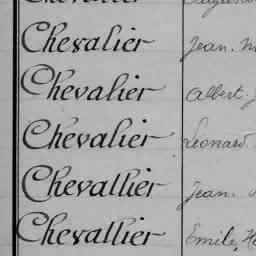 Chevalier Jean
Chevalier Albert
Chevalier Léonard
Chevallier Jean
Chevallier Emile